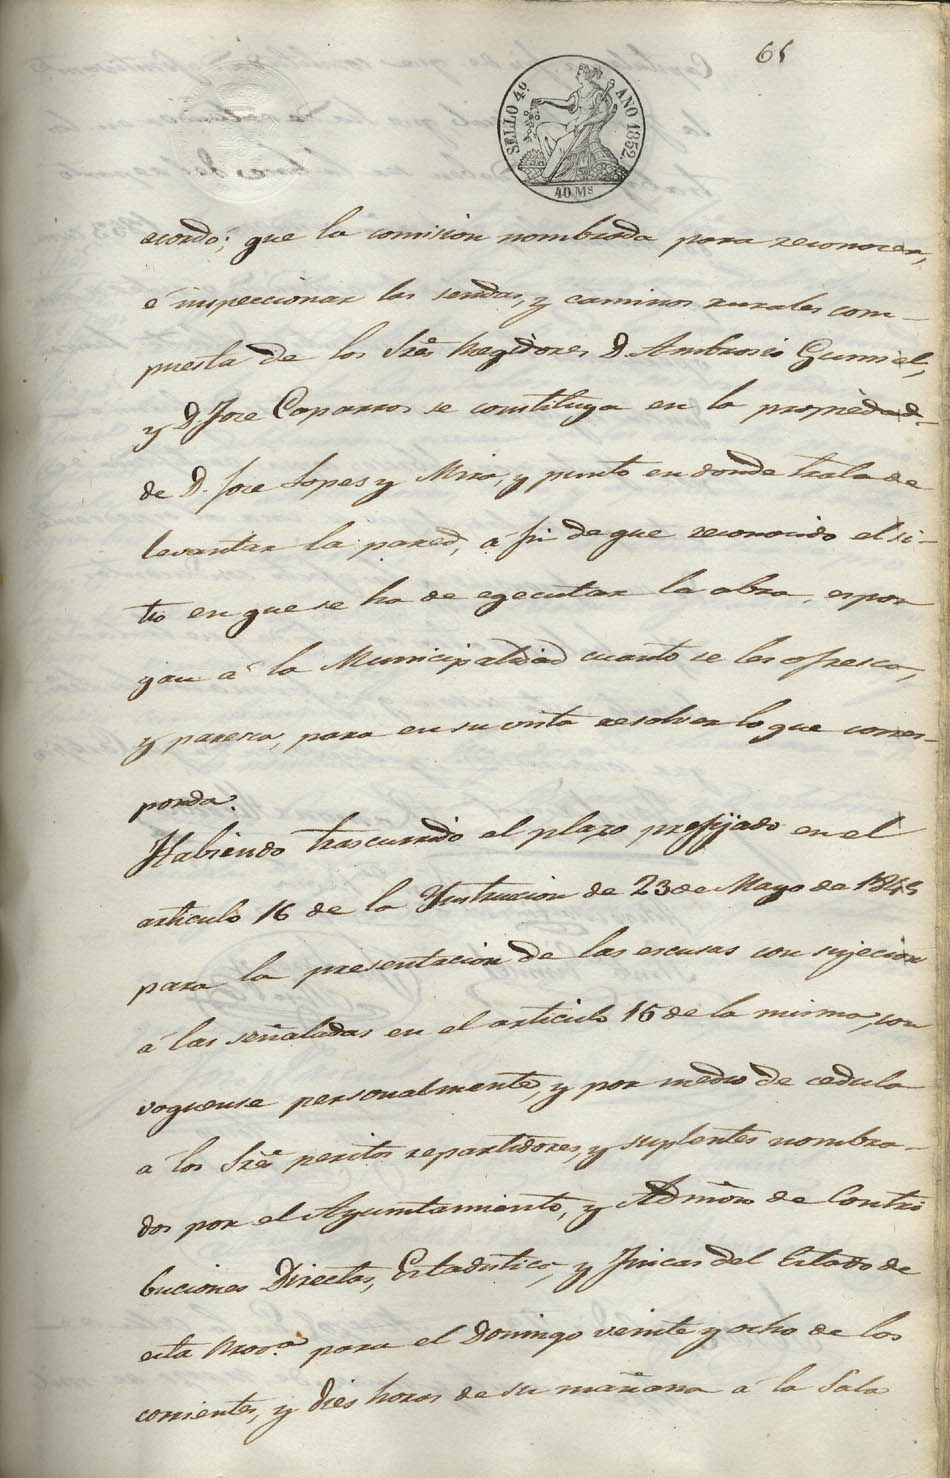 65
SELLO 4º AÑO 1852.
40 Ms
acordó; que la comision nombrada para reconocer,
é inspeccionar las sendas, y caminos rurales com-
puesta de los Sres Regidores D. Ambrosio Gumiel,
y D. Jose Caparros se constituya en la propiedad.
de D. Jose Lopes y Mira, y punto en donde trata de
levantar la pared, á fin de que reconocido el si-
tio en que se ha de egecutar la obra, espon
gan á la Municipalidad cuanto se les ofresca,
y paresca, para en su vista resolver lo que corres-
ponda.
Habiendo trascurrido el plazo prefijado en el
articulo 16 de la Ynstruccion de 23 de Mayo de 1845
para la presentacion de las escusas con sujecion
á las señaladas en el articulo 15 de la misma, con
voquense personalmente, y por medio de cedula
á los Sres peritos repartidores, y suplentes nombra-
dos por el Ayuntamiento, y Admon de Contri
buciones Directas, Estadistica, y Fincas del Estado de
esta Prova para el Domingo veinte y ocho de los
corrientes, y dies horas de su mañana á la Sala